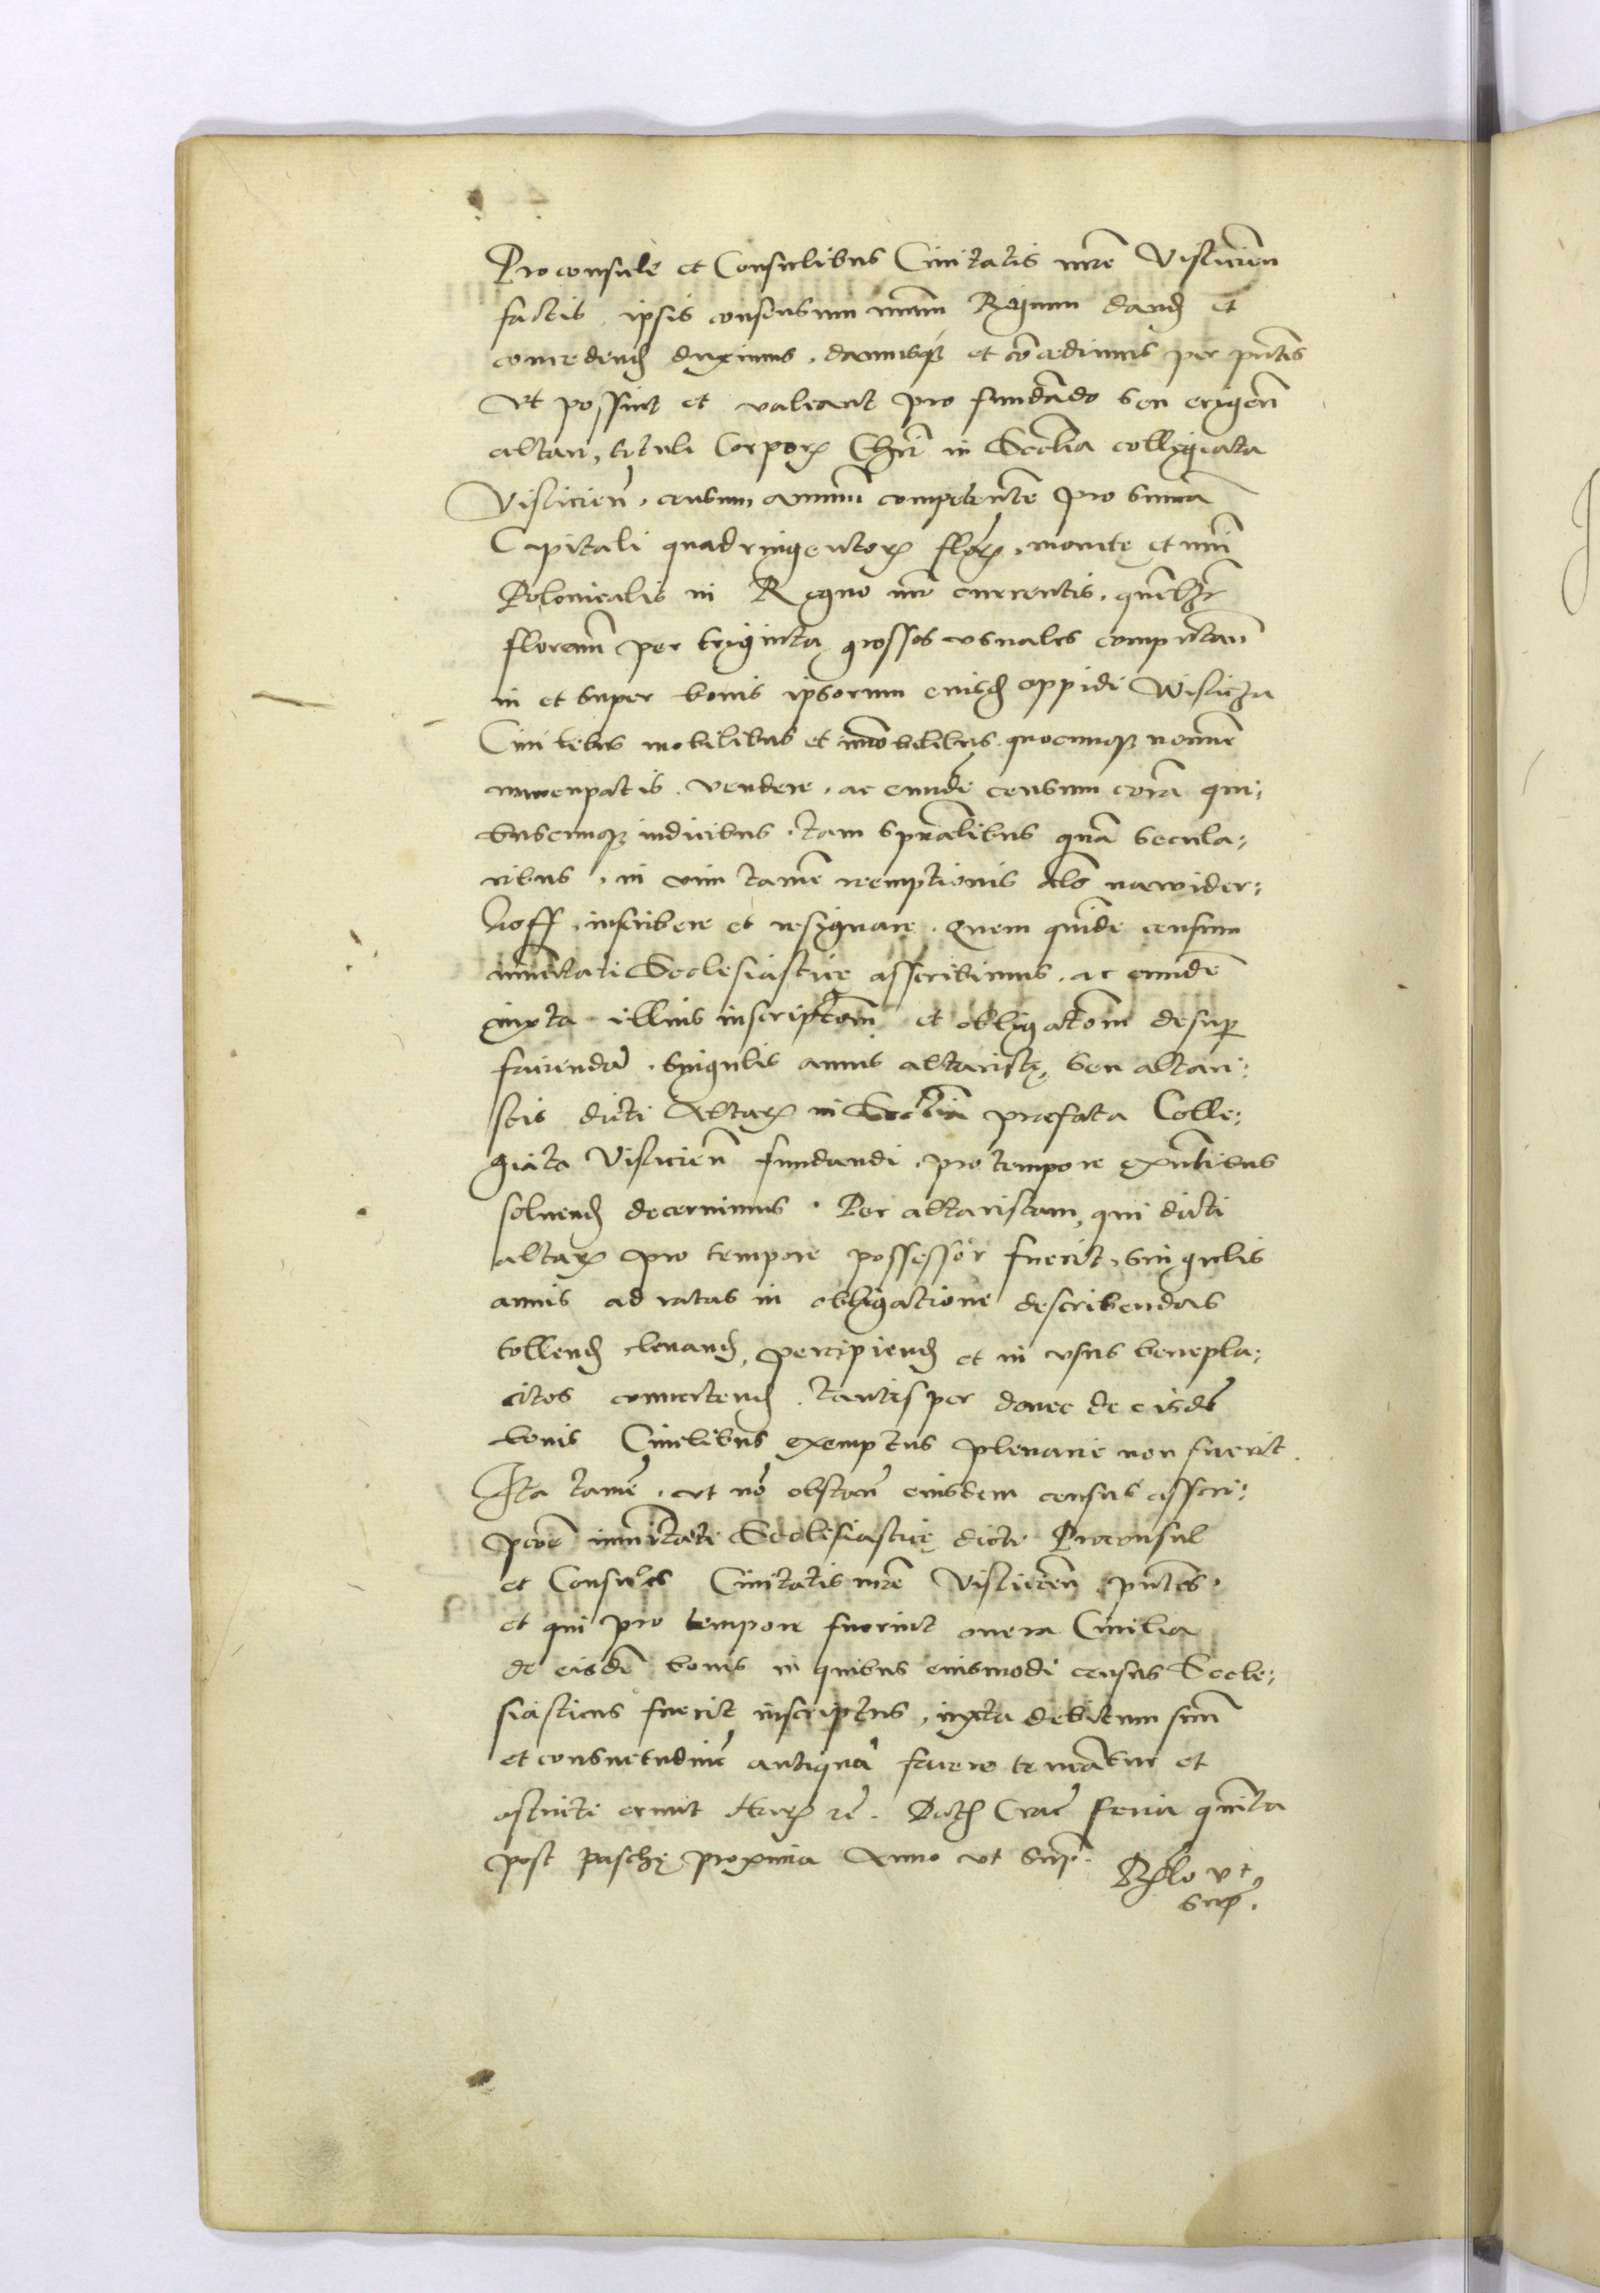 Proconsule et Consulibus Ciuitatis nr̃e Visliciẽn
factis, ipsis consensum nr̃um Regium dand et
concedend duximus, damusq et cõcedimus per pñtes
Vt possint et valeant pro fundãdo seu erigen̄
altari, tituli Corporꝝ Chri in Ecclia collegiata
Visliciẽn, censum annuũ competentẽ pro summa
Capitali quadringentorꝝ florꝝ, monete et nũi
Polonicalis in Regno nr̃o currentis, quẽlꝫt
florenũ per triginta grossos vsuales computañ
in et super bonis ipsorum eiusd oppidi Wisliczia
Ciuilibus mobilibus et immobilibus quocunqꝫ nomine
nuncupatis, vendere, ac eundẽ censum corã qui-
buscunqꝫ iudicibus, tam sp̃ualibus quã secula-
ribus, in vim tamẽ reemptionis als nawider-
koff, inscribere et resignare. Quem quidẽ censum
immũitati Ecclesiastice asscribimus, ac eundẽ
iuxta illius inscriptiõem et obligatiõem desuper
faciendã, singulis annis altariste, seu altari-
stis dicti Altarꝝ in Ecclia praefata Colle-
giata Visliciẽn fundandi, pro tempore existẽntibus
soluend decernimus. Per altaristam, qui dicti
altarꝝ pro tempore possessor fuerit, singulis
annis ad ratas in obligatione describendas
tollend leuand, percipiend et in vsus benepla-
citos conuertend, tantisper donec de eisdẽ
bonis Ciuilibus exemptus plenarie non fuerit.
Ita tamẽ, vt nõ obstañ eiusdem census asscri-
ptiõe immũitati Ecclesiastice dicti Proconsul
et Consules Ciuitatis nr̃e Visliciẽn pñtes,
et qui pro tempore fuerint onera Ciuilia
de eisdẽ bonis in quibus eiusmodi census Eccle-
siasticus fuerit inscriptus, iuxta debitum suũ
et consuetudinẽ antiquã facere teneãtur et
astricti erunt Harꝝ rẽ. Datꝫ Crac̃ feria quinta
post Pasche proxima Anno vt sup̃.
Rel̃o vt
sup̃.